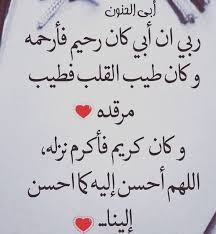 أبي الحنون
ربي ان أبي كان رحيم فأرحمه
وكان طيب القلب فطيب
مرقده ❤
وكان كريم فأكرم نزله،
اللهم أحسن إليه كما احسن
إلينا.. ❤